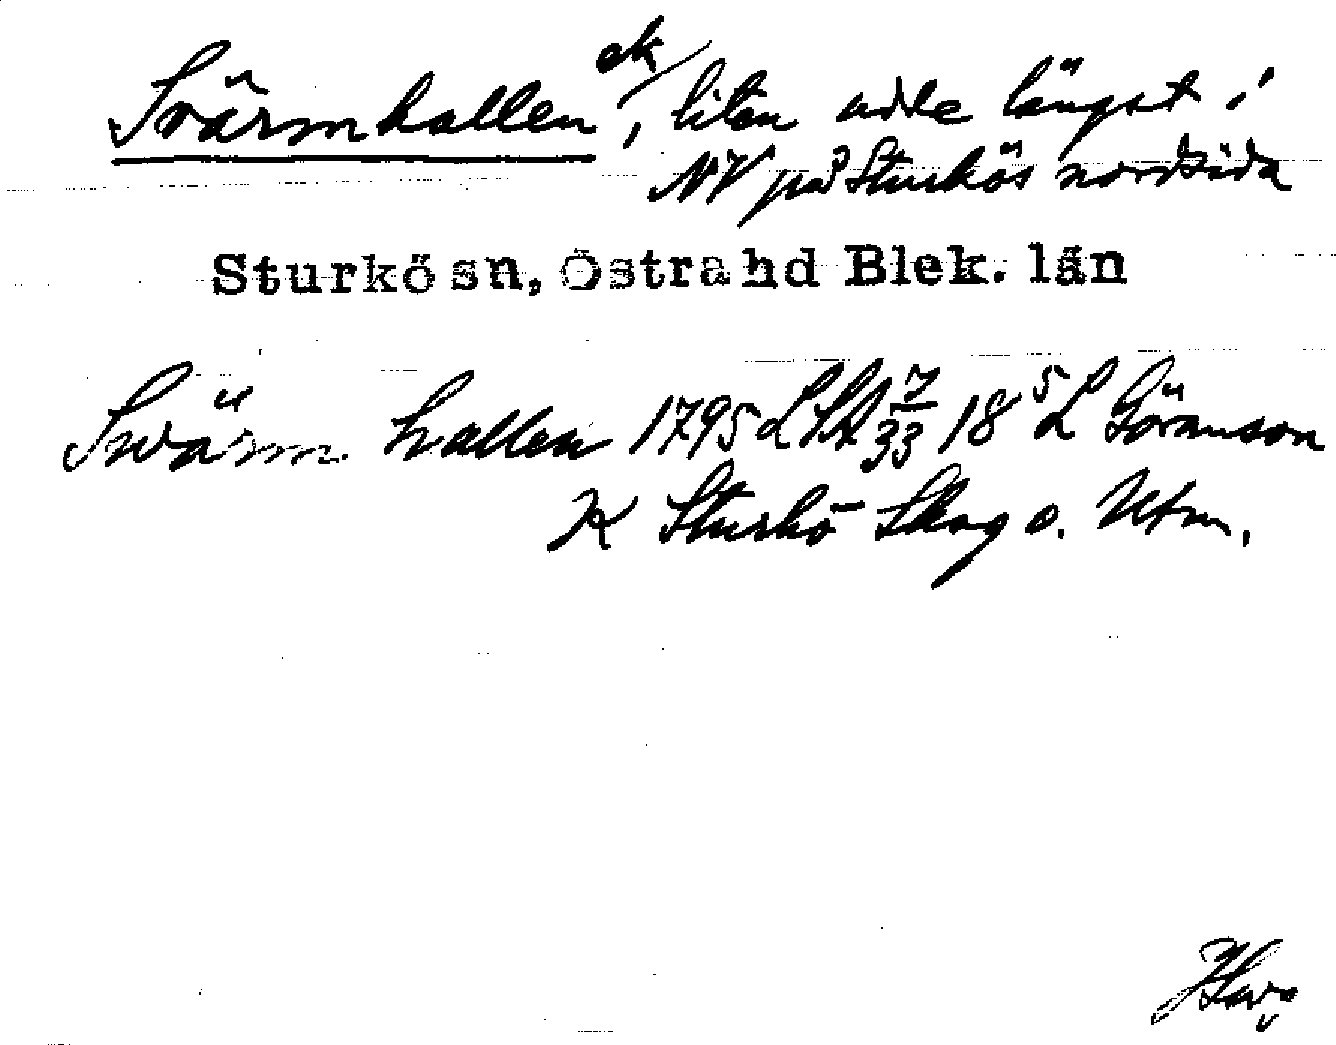 Svärmhallen ek/, liten udde längst i
NV på Sturkös nordsida
Sturkö sn, Östra hd Blek. län
Swärm hallen 1795 LSA 7/33 18 5 L Göranson
K Sturkö Skog o. Utm.